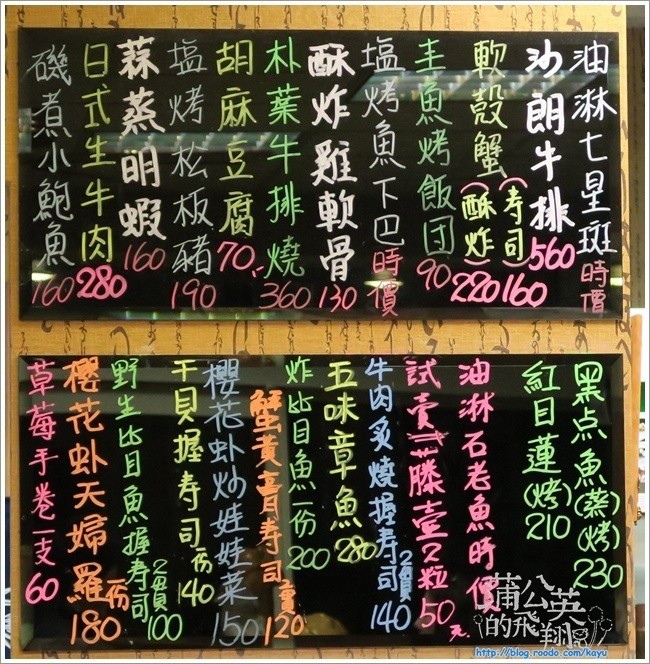 油淋七星斑 時價
沙朗牛排 560
軟殼蟹 (壽司) 160
(酥炸) 220
圭魚烤飯団 90
塩烤魚下巴 時價
酥炸雞軟骨 130
朴葉牛排燒 360
胡麻豆腐 70
塩烤松板豬 190
蒜蒸明蝦 160
日式生牛肉 280
磯煮小鮑魚 160
黑点魚(蒸)(烤) 230
紅目蓮(烤) 210
油淋石老魚時價
試賣 藤壺2粒 50元
牛肉炙燒握壽司 2個 140
五味章魚 280
炸比目魚一份 200
蟹黃膏壽司 2貫 120
櫻花虾炒娃娃菜 150
干貝握壽司 份 140
野生比目魚握壽司 2個 100
櫻花虾天婦羅 一份 180
草莓手卷一支 60
蒲公英
的飛翔
http://blog.roodo.com/kayu